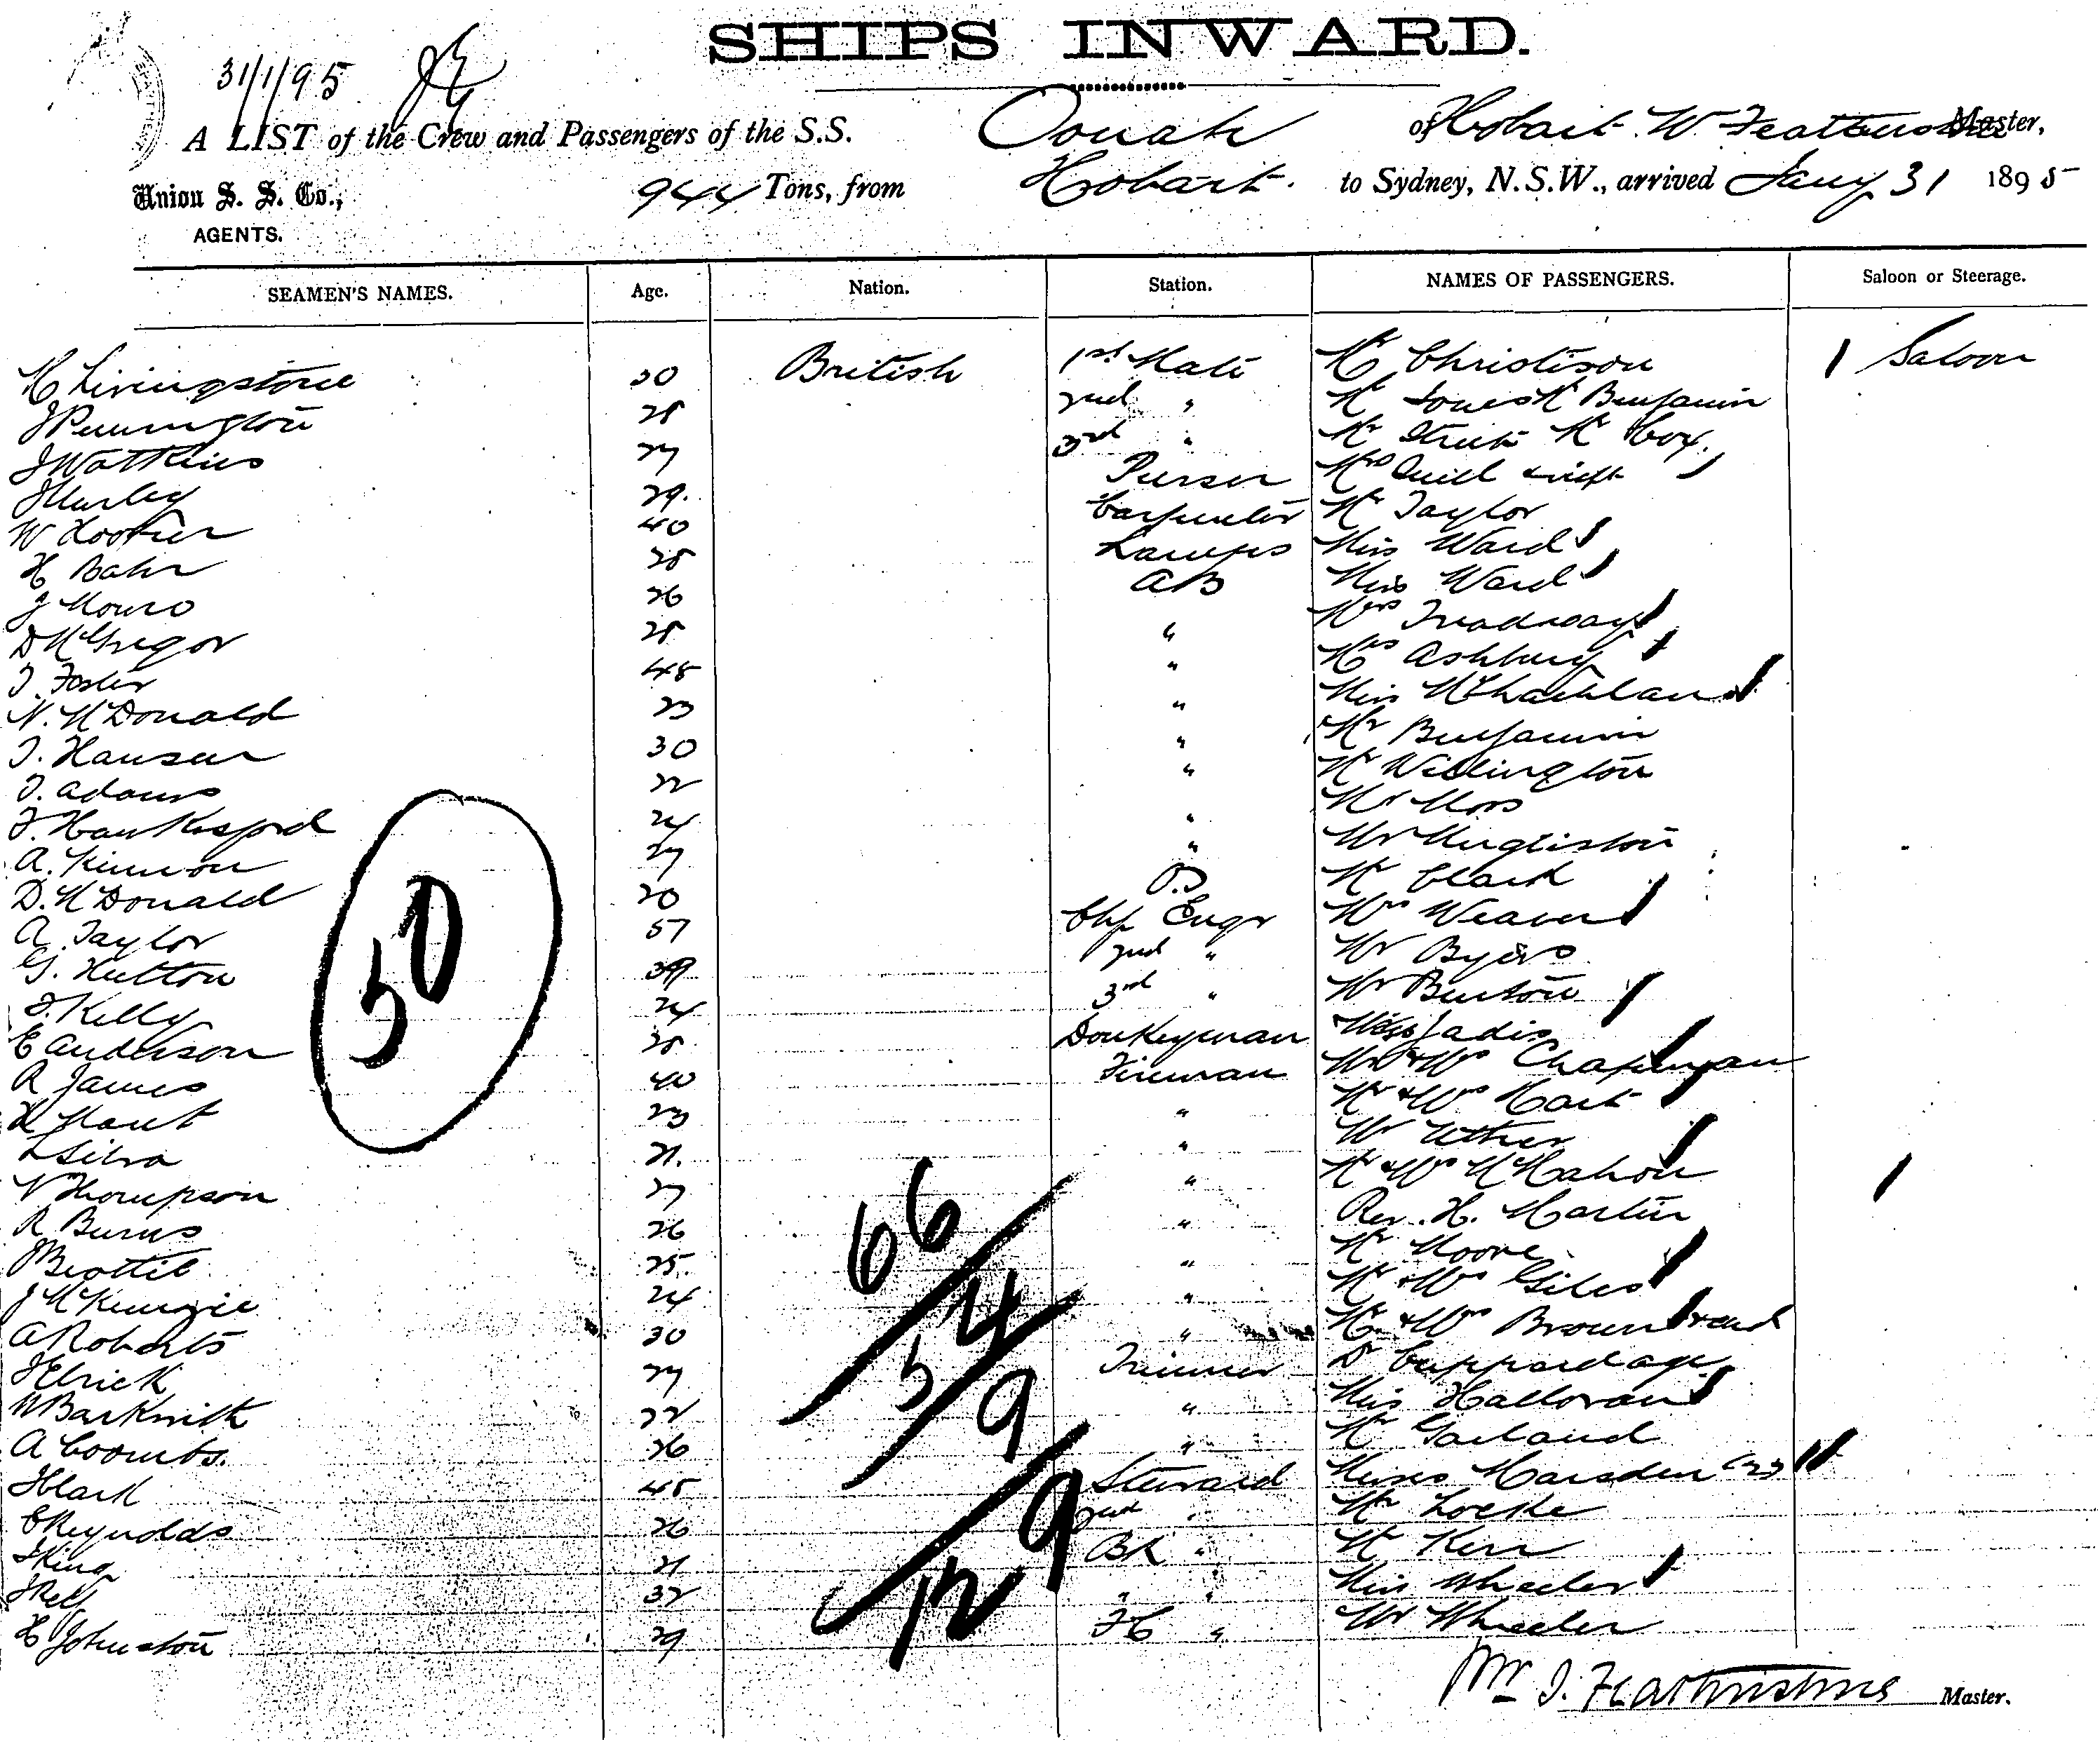 SHIPS INWARD.
31/1/95
A LIST of the Crew and Passengers of the S.S. Oonah of Hobart. W. Featherstone Master,
Union S. S. Co., 944 Tons, from Hobart. to Sydney, N.S.W., arrived Jany 31 1895
AGENTS.
SEAMEN'S NAMES. Age. Nation. Station. NAMES OF PASSENGERS. Saloon or Steerage.
Livingstone 30 British 1st Mate Mr Christison 1 Saloon
J Pennington 28 2nd " Mr Jones Mr Benjamin
J Watkins 27 3rd " Mr Street Mr Cox.
J Hurley 29. Purser Mrs Quill
W 40 Carpenter Mr Taylor
H Bahr 28 Lamps Miss Ward
J Monro 26 AB Miss Ward
D McGregor 28 " Mrs Treadway
T. Foster 48 " Mrs Ashbury
N. McDonald 23 " Miss McLachlan
T. Hansen 30 " Mr Benjamin
T. Adams 22 " Mr Wellington
F. Hanksford 24 " Mr Moss
A. Kinnon 27 " Mr Hugliston
D. McDonald 20 O.S Mr Clark
A. Taylor 57 Chf Engr Mrs Weaver
G. Hutton 39 2nd " Mr Byers
J. Kelly 24 3rd " Mr Burton
E Anderson 28 Donkeyman
R James 40 Fireman Mr & Mrs Chapman
Hant 23 " Mr & Mrs Hart
L Silva 21. " Mr Uther
N Thompson 27 " Mr & Mrs McMahon
R Burns 26 " Rev. H. Martin
J Beattie 25. " Mr Moore
J McKenzie 24 " Mr & Mrs Giles
A Roberts 30 " Mr & Mrs Brownbread
J Elrick 27 Trimmer Dr Cuppardage
W Barksmith 22 " Miss Halloran
A Coombs. 26 " Mr Garland
J Clark 45 Steward Misses Marsden (2)
C Reynolds 26 2nd " Mr Locke
J King 21 BR " Mr Kerr
32 " " Miss Wheeler
H Johnston 29 FC " Mr Wheeler
50
66
54
9
129
Wm J. Featherstone Master.